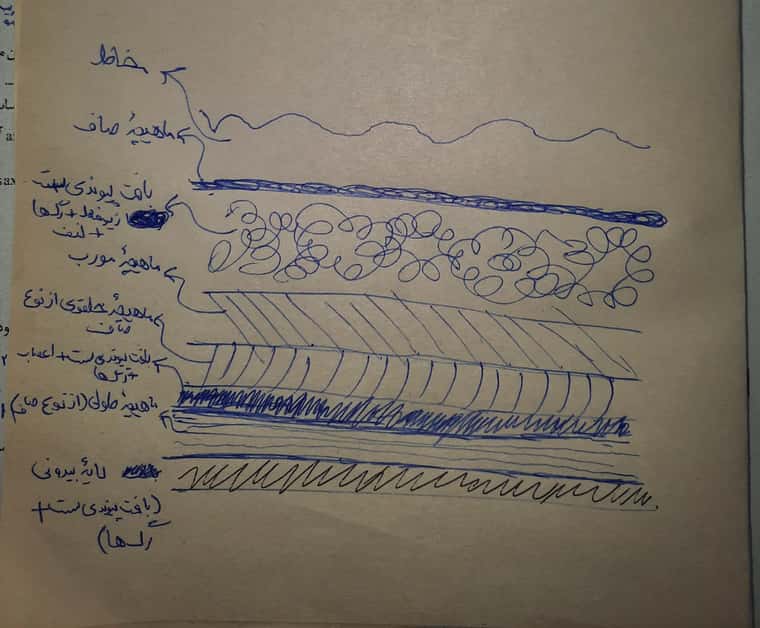 مخاط
ماهیچهٔ صاف
بافت پیوندی سست
زیرمخاط + رگ‌ها
+ لنف
ماهیچهٔ مورب
ماهیچهٔ حلقوی از نوع
صاف
بافت پیوندی سست + اعصاب
+ رگ‌ها
ماهیچهٔ طولی (از نوع صاف)
لایهٔ بیرونی
(بافت پیوندی سست +
رگ‌ها)